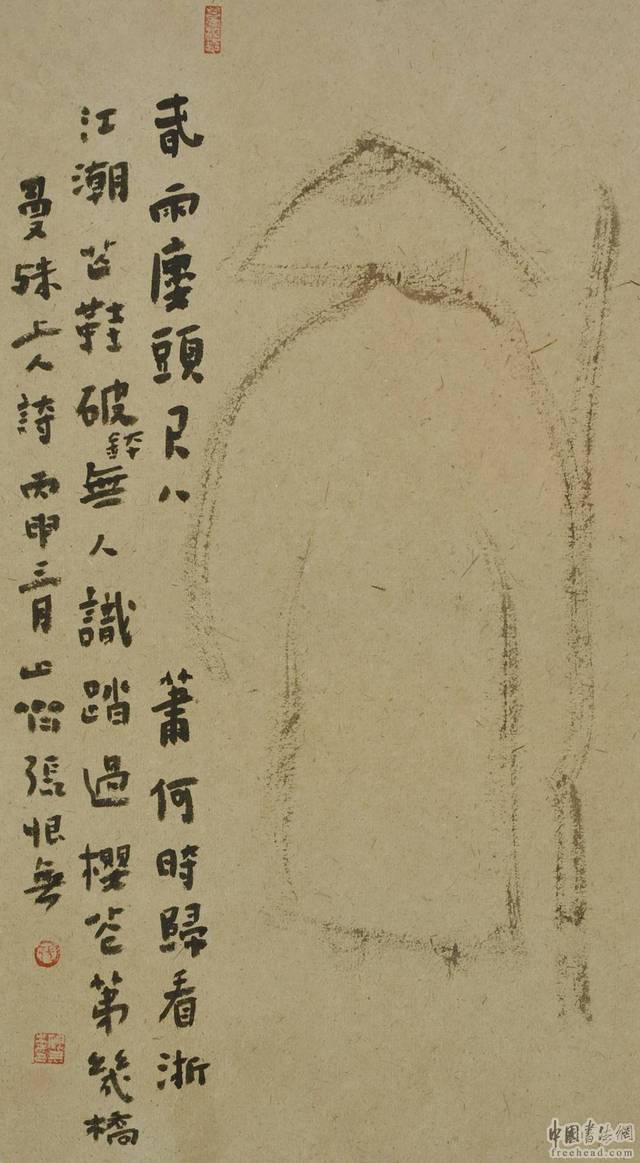 春雨廔頭尺八蕭何時歸看浙
江潮芒鞋破鉢無人識踏過櫻花第幾橋
曼殊上人詩丙申三月山僧張恨無
中国书法網
freehead.com